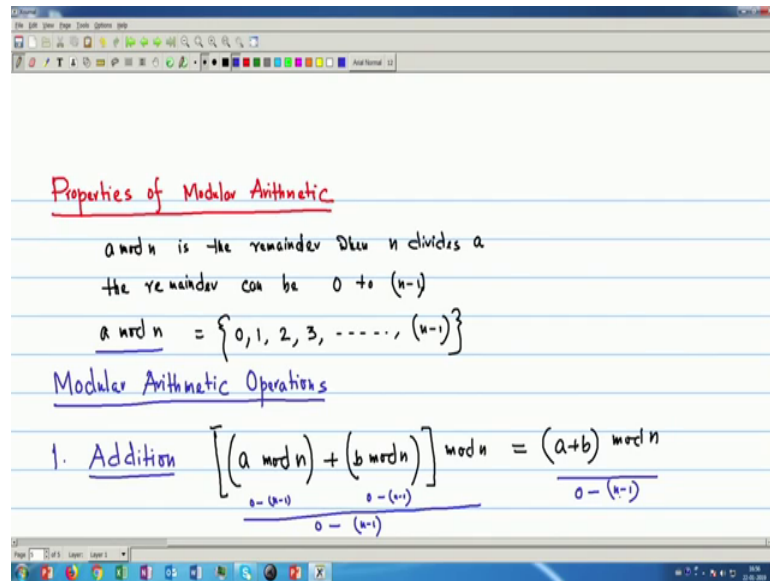 Journal
File Edit View Page Tools Options Help
Arial Normal 12
Properties of Modular Arithmetic
a mod n is the remainder when n divides a
the remainder can be 0 to (n-1)
a mod n = {0, 1, 2, 3, ------, (n-1)}
Modular Arithmetic Operations
1. Addition [(a mod n) + (b mod n)] mod n = (a+b) mod n
0 - (n-1) 0 - (n-1) 0 - (n-1)
0 - (n-1)
Page 5 of 5 Layer: Layer 1
16:56